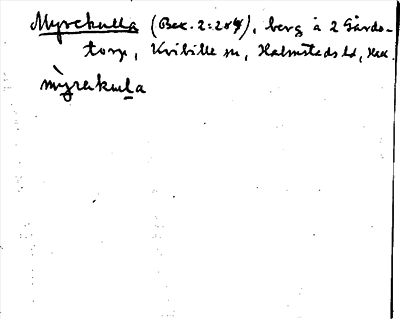 Myrekulla (Bex. 2:204), berg å 2 Gårds-
torp, Kvibille sn, Halmstads hd, Hall.
mỳrekula